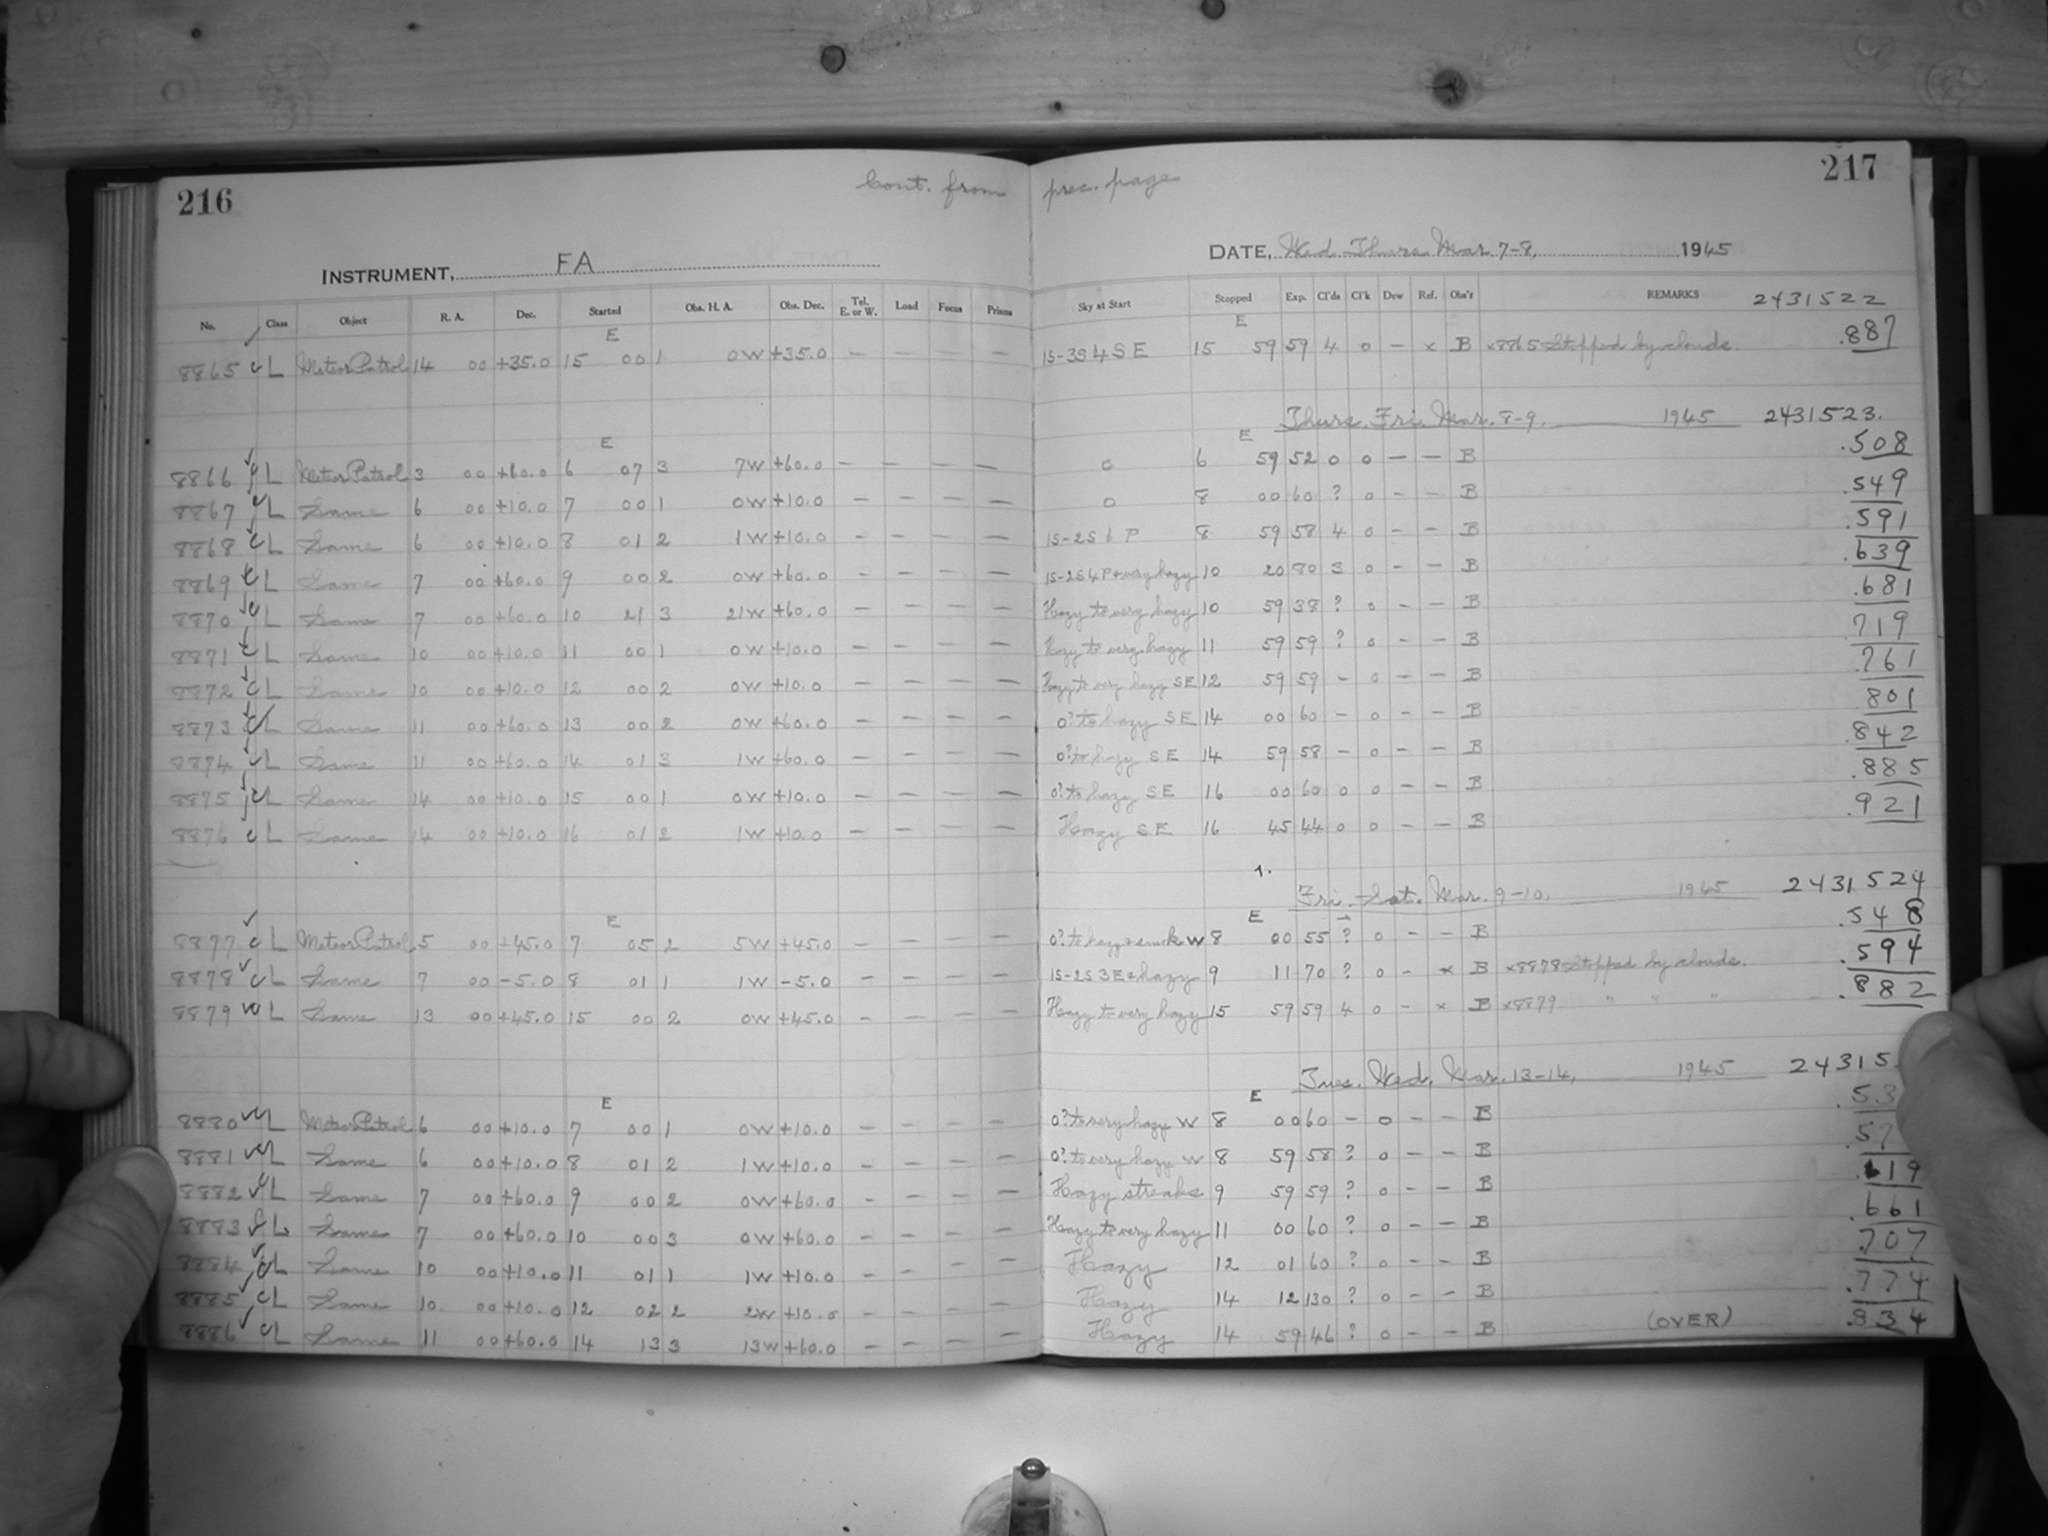 216
Cont. from prec. page
217
INSTRUMENT, FA
DATE, Wed. Thurs. Mar. 7-8, 1945
No. Class Object R. A. Dec. Started Obs. H. A. Obs. Dec. Tel. E. or W. Load Focus Prisms Sky at Start Stopped Exp. Cl'ds Cl'k Dew Ref. Obs'r REMARKS 2431522
E E
8865 c L Meteor Patrol 14 00 +35.0 15 00 1 0W +35.0 — — — — 1S-3S 4 SE 15 59 59 4 0 — x B x8865 Stopped by clouds. .887
Thurs. Fri. Mar. 8-9, 1945 2431523.
E E
8866 c L Meteor Patrol 3 00 +60.0 6 07 3 7W +60.0 — — — — 0 6 59 52 0 0 — — B .508
8867 c L Same 6 00 +10.0 7 00 1 0W +10.0 — — — — 0 8 00 60 ? 0 — — B .549
8868 c L Same 6 00 +10.0 8 01 2 1W +10.0 — — — — 1S-2S 6 P 8 59 58 4 0 — — B .591
8869 c L Same 7 00 +60.0 9 00 2 0W +60.0 — — — — 1S-2S 4 P + very hazy 10 20 80 3 0 — — B .639
8870 c L Same 7 00 +60.0 10 21 3 21W +60.0 — — — — Hazy to very hazy 10 59 38 ? 0 — — B .681
8871 c L Same 10 00 +10.0 11 00 1 0W +10.0 — — — — Hazy to very hazy 11 59 59 ? 0 — — B .719
8872 c L Same 10 00 +10.0 12 00 2 0W +10.0 — — — — Hazy to very hazy SE 12 59 59 — 0 — — B .761
8873 c L Same 11 00 +60.0 13 00 2 0W +60.0 — — — — 0? to hazy SE 14 00 60 — 0 — — B .801
8874 c L Same 11 00 +60.0 14 01 3 1W +60.0 — — — — 0? to hazy SE 14 59 58 — 0 — — B .842
8875 c L Same 14 00 +10.0 15 00 1 0W +10.0 — — — — 0? to hazy SE 16 00 60 0 0 — — B .885
8876 c L Same 14 00 +10.0 16 01 2 1W +10.0 — — — — Hazy SE 16 45 44 0 0 — — B .921
Fri. Sat. Mar. 9-10, 1945 2431524
E E
8877 c L Meteor Patrol 5 00 +45.0 7 05 2 5W +45.0 — — — — 0? to hazy + smoke W 8 00 55 ? 0 — — B .548
8878 c L Same 7 00 -5.0 8 01 1 1W -5.0 — — — — 1S-2S 3 E + hazy 9 11 70 ? 0 — x B x8878 Stopped by clouds. .594
8879 c L Same 13 00 +45.0 15 00 2 0W +45.0 — — — — Hazy to very hazy 15 59 59 4 0 — x B x8879 " " " .882
Tues. Wed. Mar. 13-14, 1945 24315
E E
8880 c L Meteor Patrol 6 00 +10.0 7 00 1 0W +10.0 — — — — 0? to very hazy W 8 00 60 — 0 — — B .53
8881 c L Same 6 00 +10.0 8 01 2 1W +10.0 — — — — 0? to very hazy W 8 59 58 ? 0 — — B .57
8882 c L Same 7 00 +60.0 9 00 2 0W +60.0 — — — — Hazy streaks 9 59 59 ? 0 — — B .619
8883 c L Same 7 00 +60.0 10 00 3 0W +60.0 — — — — Hazy to very hazy 11 00 60 ? 0 — — B .661
8884 c L Same 10 00 +10.0 11 01 1 1W +10.0 — — — — Hazy 12 01 60 ? 0 — — B .707
8885 c L Same 10. 00 +10.0 12 02 2 2W +10.0 — — — — Hazy 14 12 130 ? 0 — — B .774
8886 c L Same 11 00 +60.0 14 13 3 13W +60.0 — — — — Hazy 14 59 46 ? 0 — — B (OVER) .834